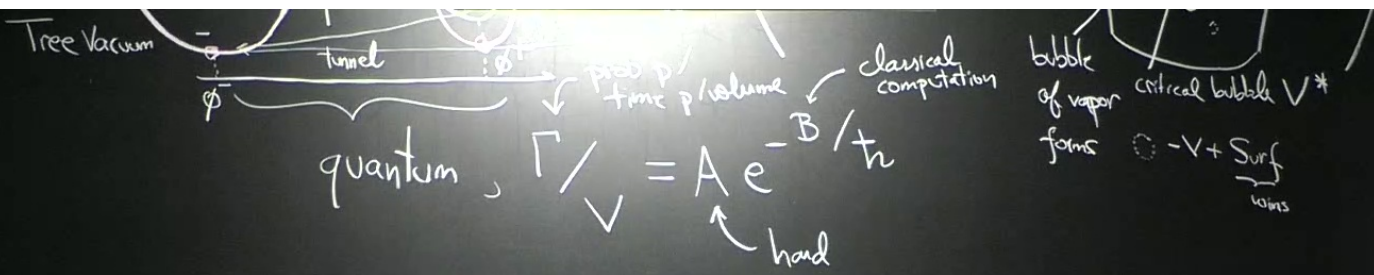 Tree Vacuum
tunnel
φ⁻
φ⁺
prob p/
time p/volume
classical
computation
quantum, Γ/V = A e^{-B/ħ}
hard
bubble
of vapor
forms
critical bubble V*
-V + Surf
wins